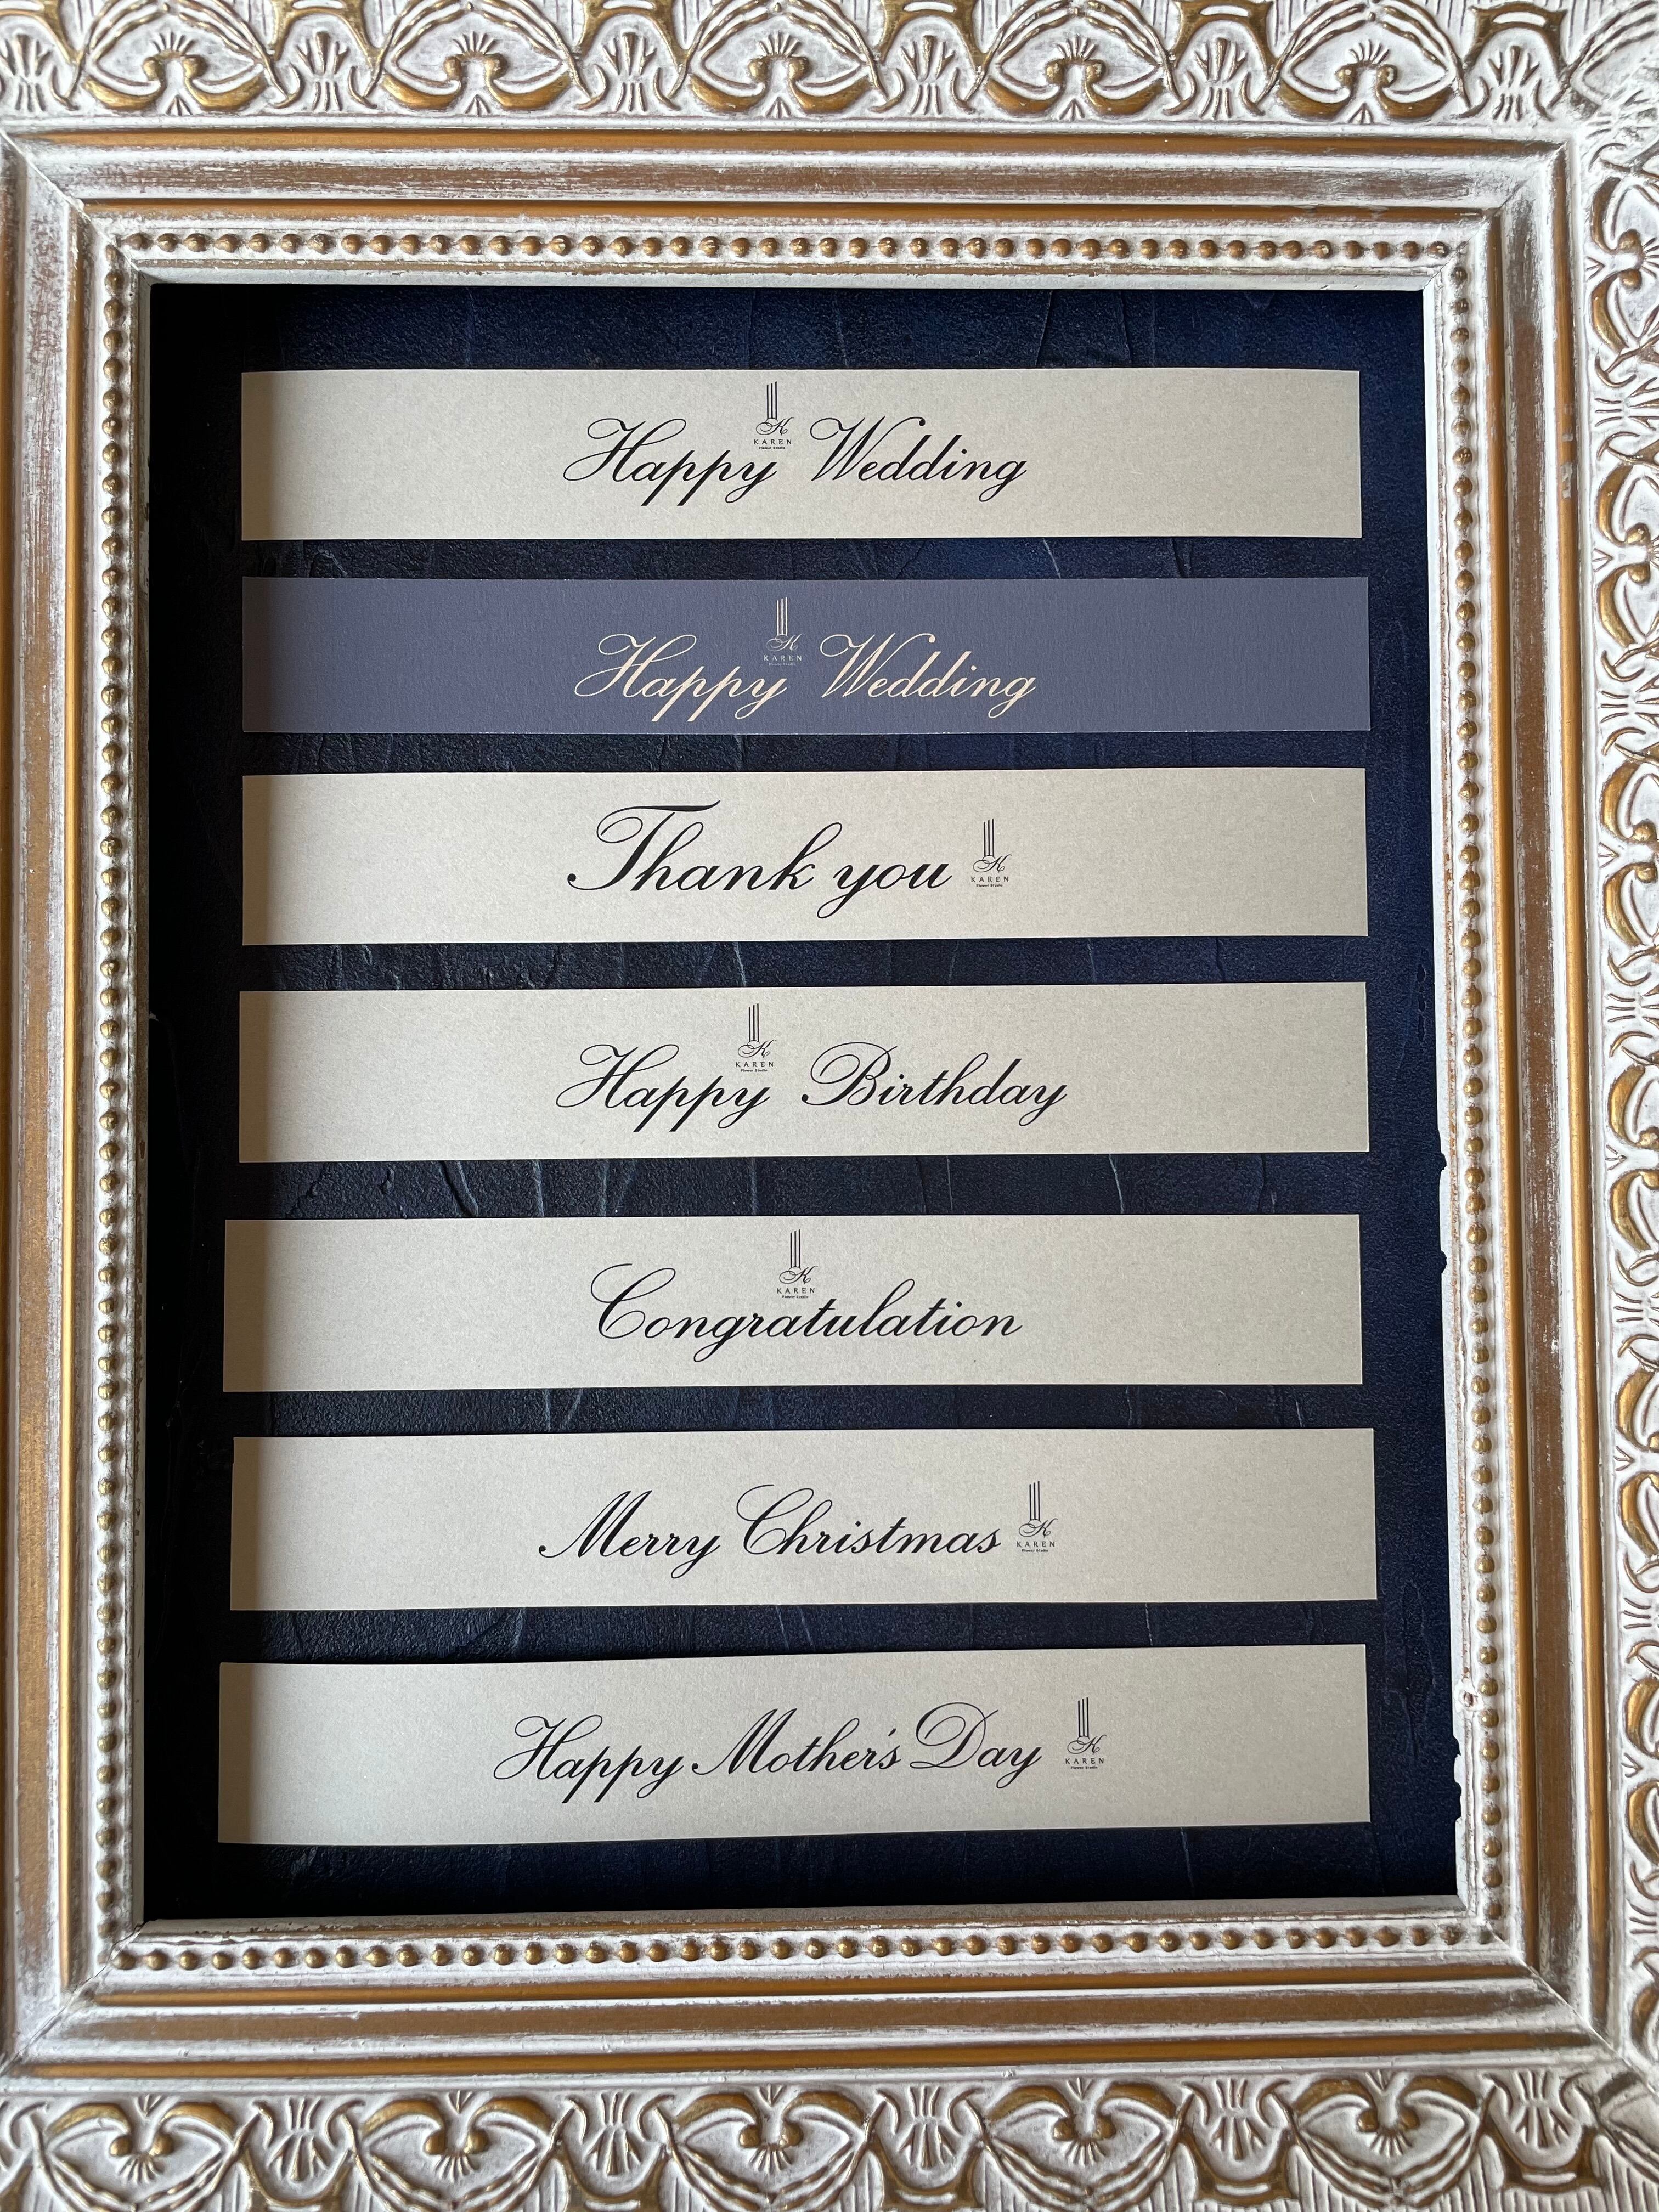 K
KAREN
Flower Studio
Happy Wedding
K
KAREN
Flower Studio
Happy Wedding
Thank you
K
KAREN
Flower Studio
K
KAREN
Flower Studio
Happy Birthday
K
KAREN
Flower Studio
Congratulation
Merry Christmas
K
KAREN
Flower Studio
Happy Mother's Day
K
KAREN
Flower Studio